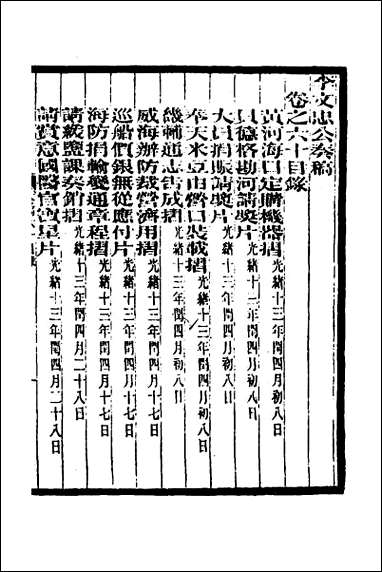 李文忠公奏稿
卷之六十目錄
黃河海口定購機器摺 光緒十三年閏四月初八日
以德格勘河請獎片 光緒十三年閏四月初八日
大員捐賑請獎片 光緒十三年閏四月初八日
奉天米豆由營口裝載摺 光緒十三年閏四月初八日
畿輔通志告成摺 光緒十三年閏四月初八日
威海辦防裁營濟用摺 光緒十三年閏四月十七日
巡船價銀無從應付片 光緒十三年閏四月十七日
海防捐輸變通章程摺 光緒十三年閏四月十七日
請緩鹽課奏銷摺 光緒十三年閏四月二十八日
請賞意國醫官寶星片 光緒十三年閏四月二十八日